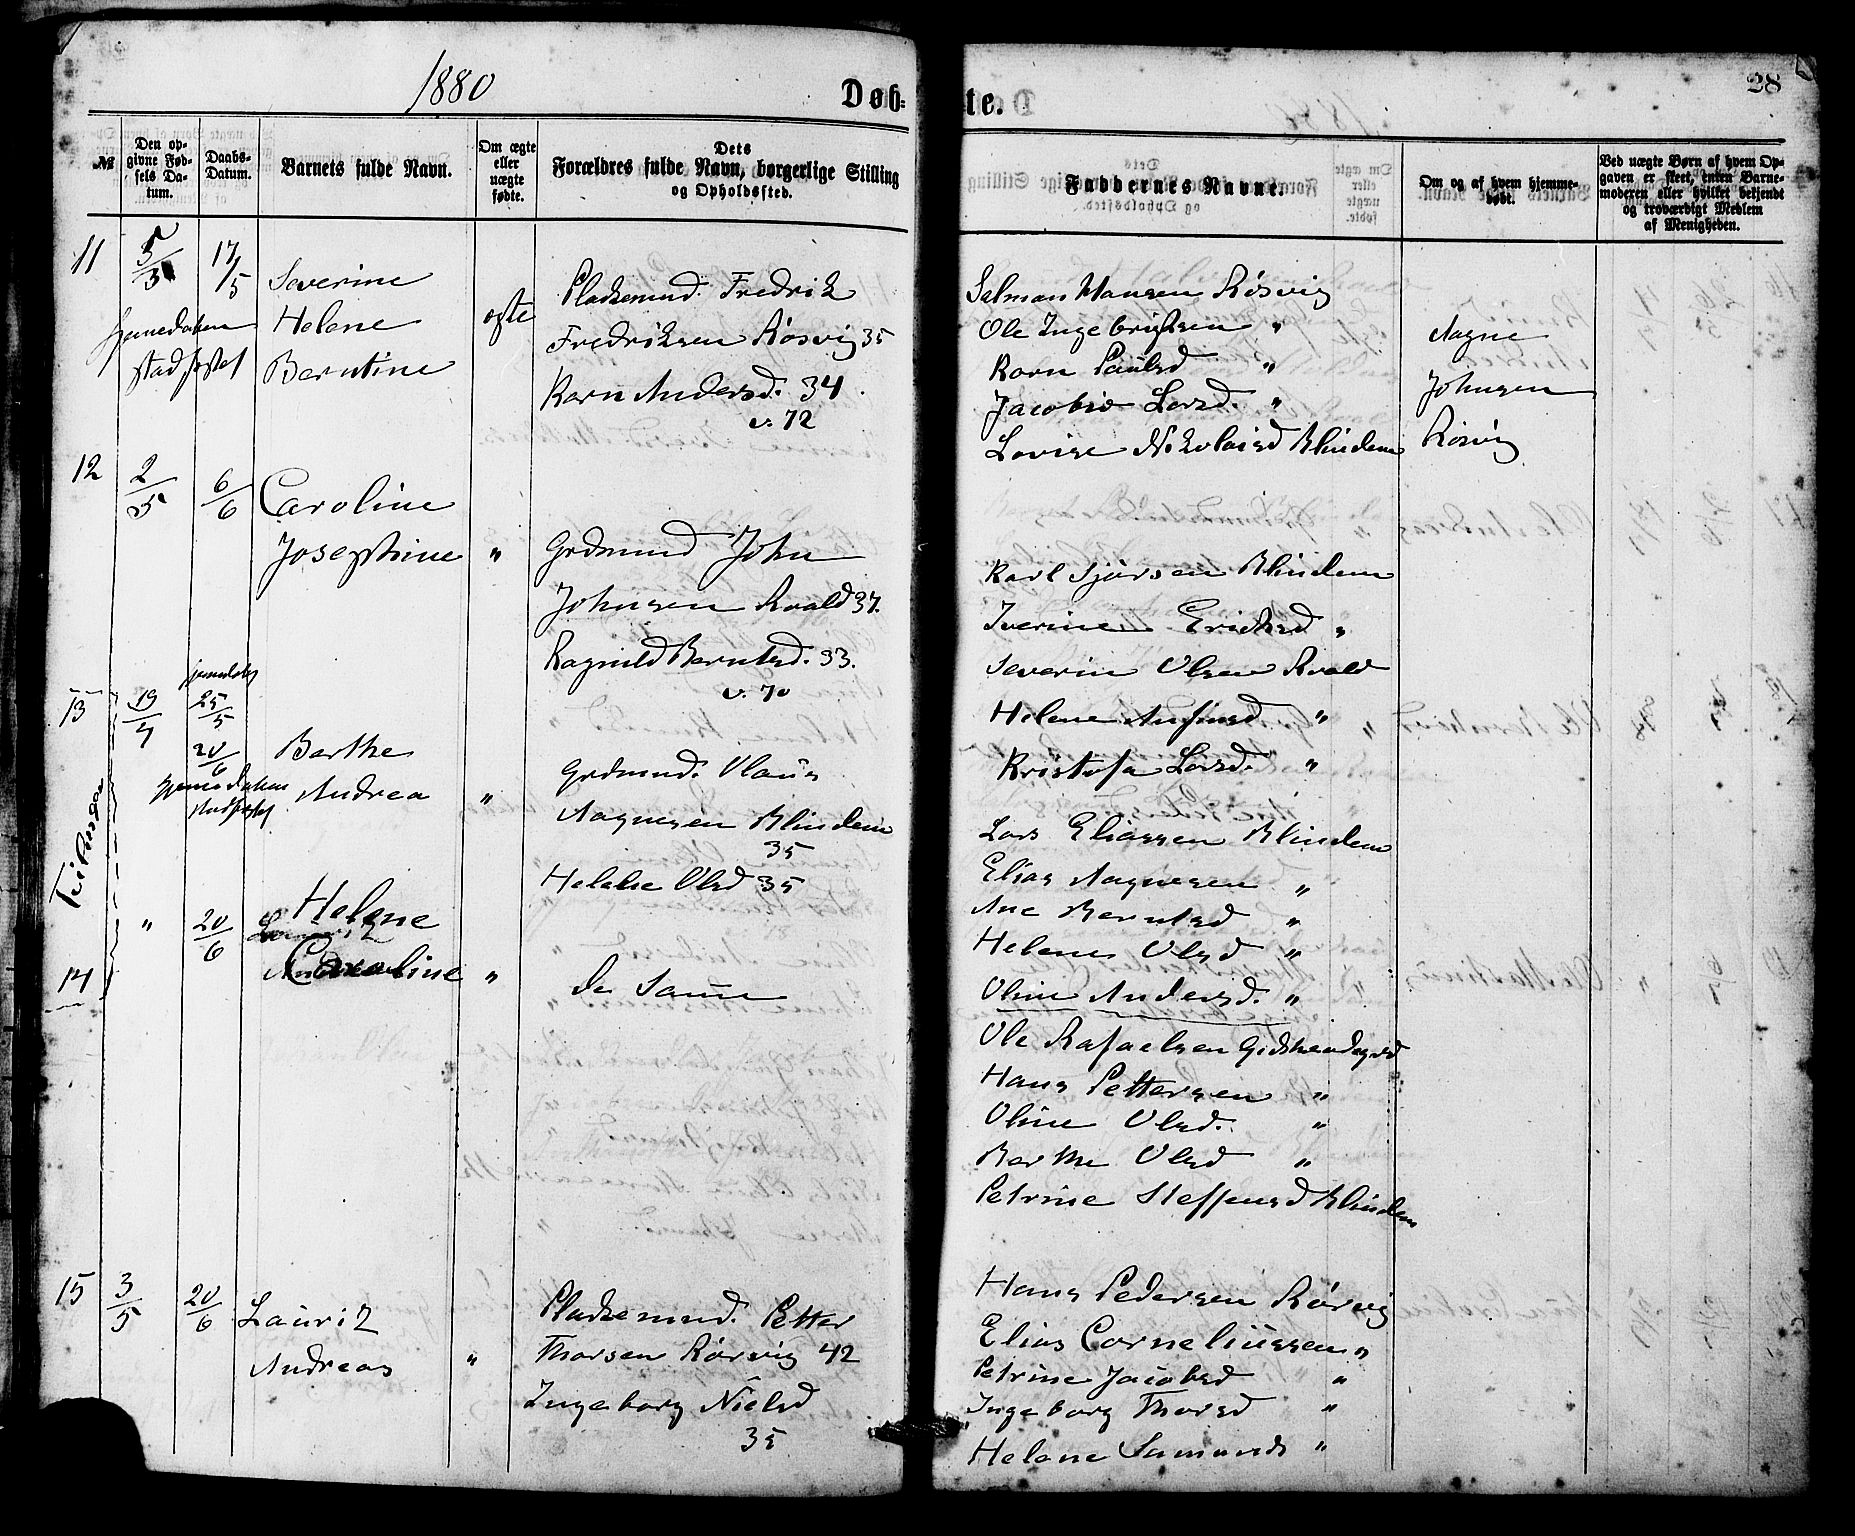 1880
Døb-
te.
28
№
Den op-
givne Fød-
sels Da-
tum.
Daabs-
Datum.
Barnets fulde Navn.
Om ægte
eller
uægte
fødte.
Dets
Forældres fulde Navn, borgerlige Stilling
og Opholdssted.
Faddernes Navne.
Om og af hvem hjemme-
døbt.
Ved uægte Børn af hvem Op-
gaven er skeet, enten Barne-
moderen eller hvilket bekjendt
og troværdigt Medlem
af Menigheden.
11
5/3
17/5
Severine
Helene
Berntine
hjemedaaben
stadfæstet
ægte
Pladsemnd. Fredrik
Fredriksen Røsvig 35
Karn Andersd. 34
v. 72
Salman Hansen Røsvig
Ole Ingebrigtsen "
Karn Paulsd "
Jacobie Larsd. "
Lovise Nikolaisd Blindem
Aagne
Johnsen
Røsvig
12
2/5
6/6
Caroline
Josephine
"
Grdmand John
Johnsen Roald 37.
Ragnild Berntsd. 33.
v. 70
Karl Sjørsen Blindem
Iverine Ericksd "
Severin Olsen Roald
Helene Anfinsd "
Kristofa Larsd. "
13
19/4
hjemedøbt
25/5
20/6
hjemedaaben
stadfæstet
Berthe
Andrea
"
Grdmand. Olaus
Aagnesen Blindem
35
Helene Olsd 35
Lars Eliassen Blindem
Elias Aagnesen "
Ane Berntsd "
Helene Olsd "
Oline Andersd. "
Tvillinger
14
"
20/6
Helene
Caroline
"
de Samme
Ole Rafaelsen Gidskeødegrd
Hans Pettersen "
Oline Olsd. "
Berthe Olsd "
Petrine Steffensd Blindem
15
3/5
20/6
Lauritz
Andreas
"
Pladsemnd. Petter
Thorsen Rørvig 42
Ingeborg Nielsd
35
Hans Pedersen Rørvig
Elias Corneliussen "
Petrine Jacobsd "
Ingeborg Thorsd "
Helene Samunds "